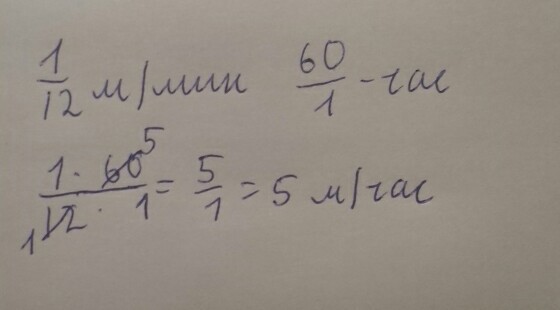 1/12 м/мин 60/1 - час
1 · 60 5 / 1 12 · 1 = 5/1 = 5 м/час